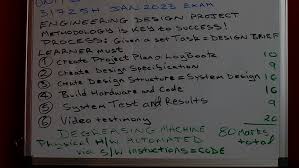 31725H JAN 2023 EXAM
ENGINEERING DESIGN PROJECT
METHODOLOGY IS KEY to SUCCESS!
PROCESS: Given a set Task = DESIGN BRIEF
LEARNER MUST
① Create Project Plan & LogBook 10
② Create Design Specification 9
③ Create Design Structure & System Design 16
④ Build Hardware and Code 16
⑤ System Test and Results 9
⑥ Video testimony 20
DEGREASING MACHINE 80 marks
Physical H/W AUTOMATED total
via S/W instructions = CODE